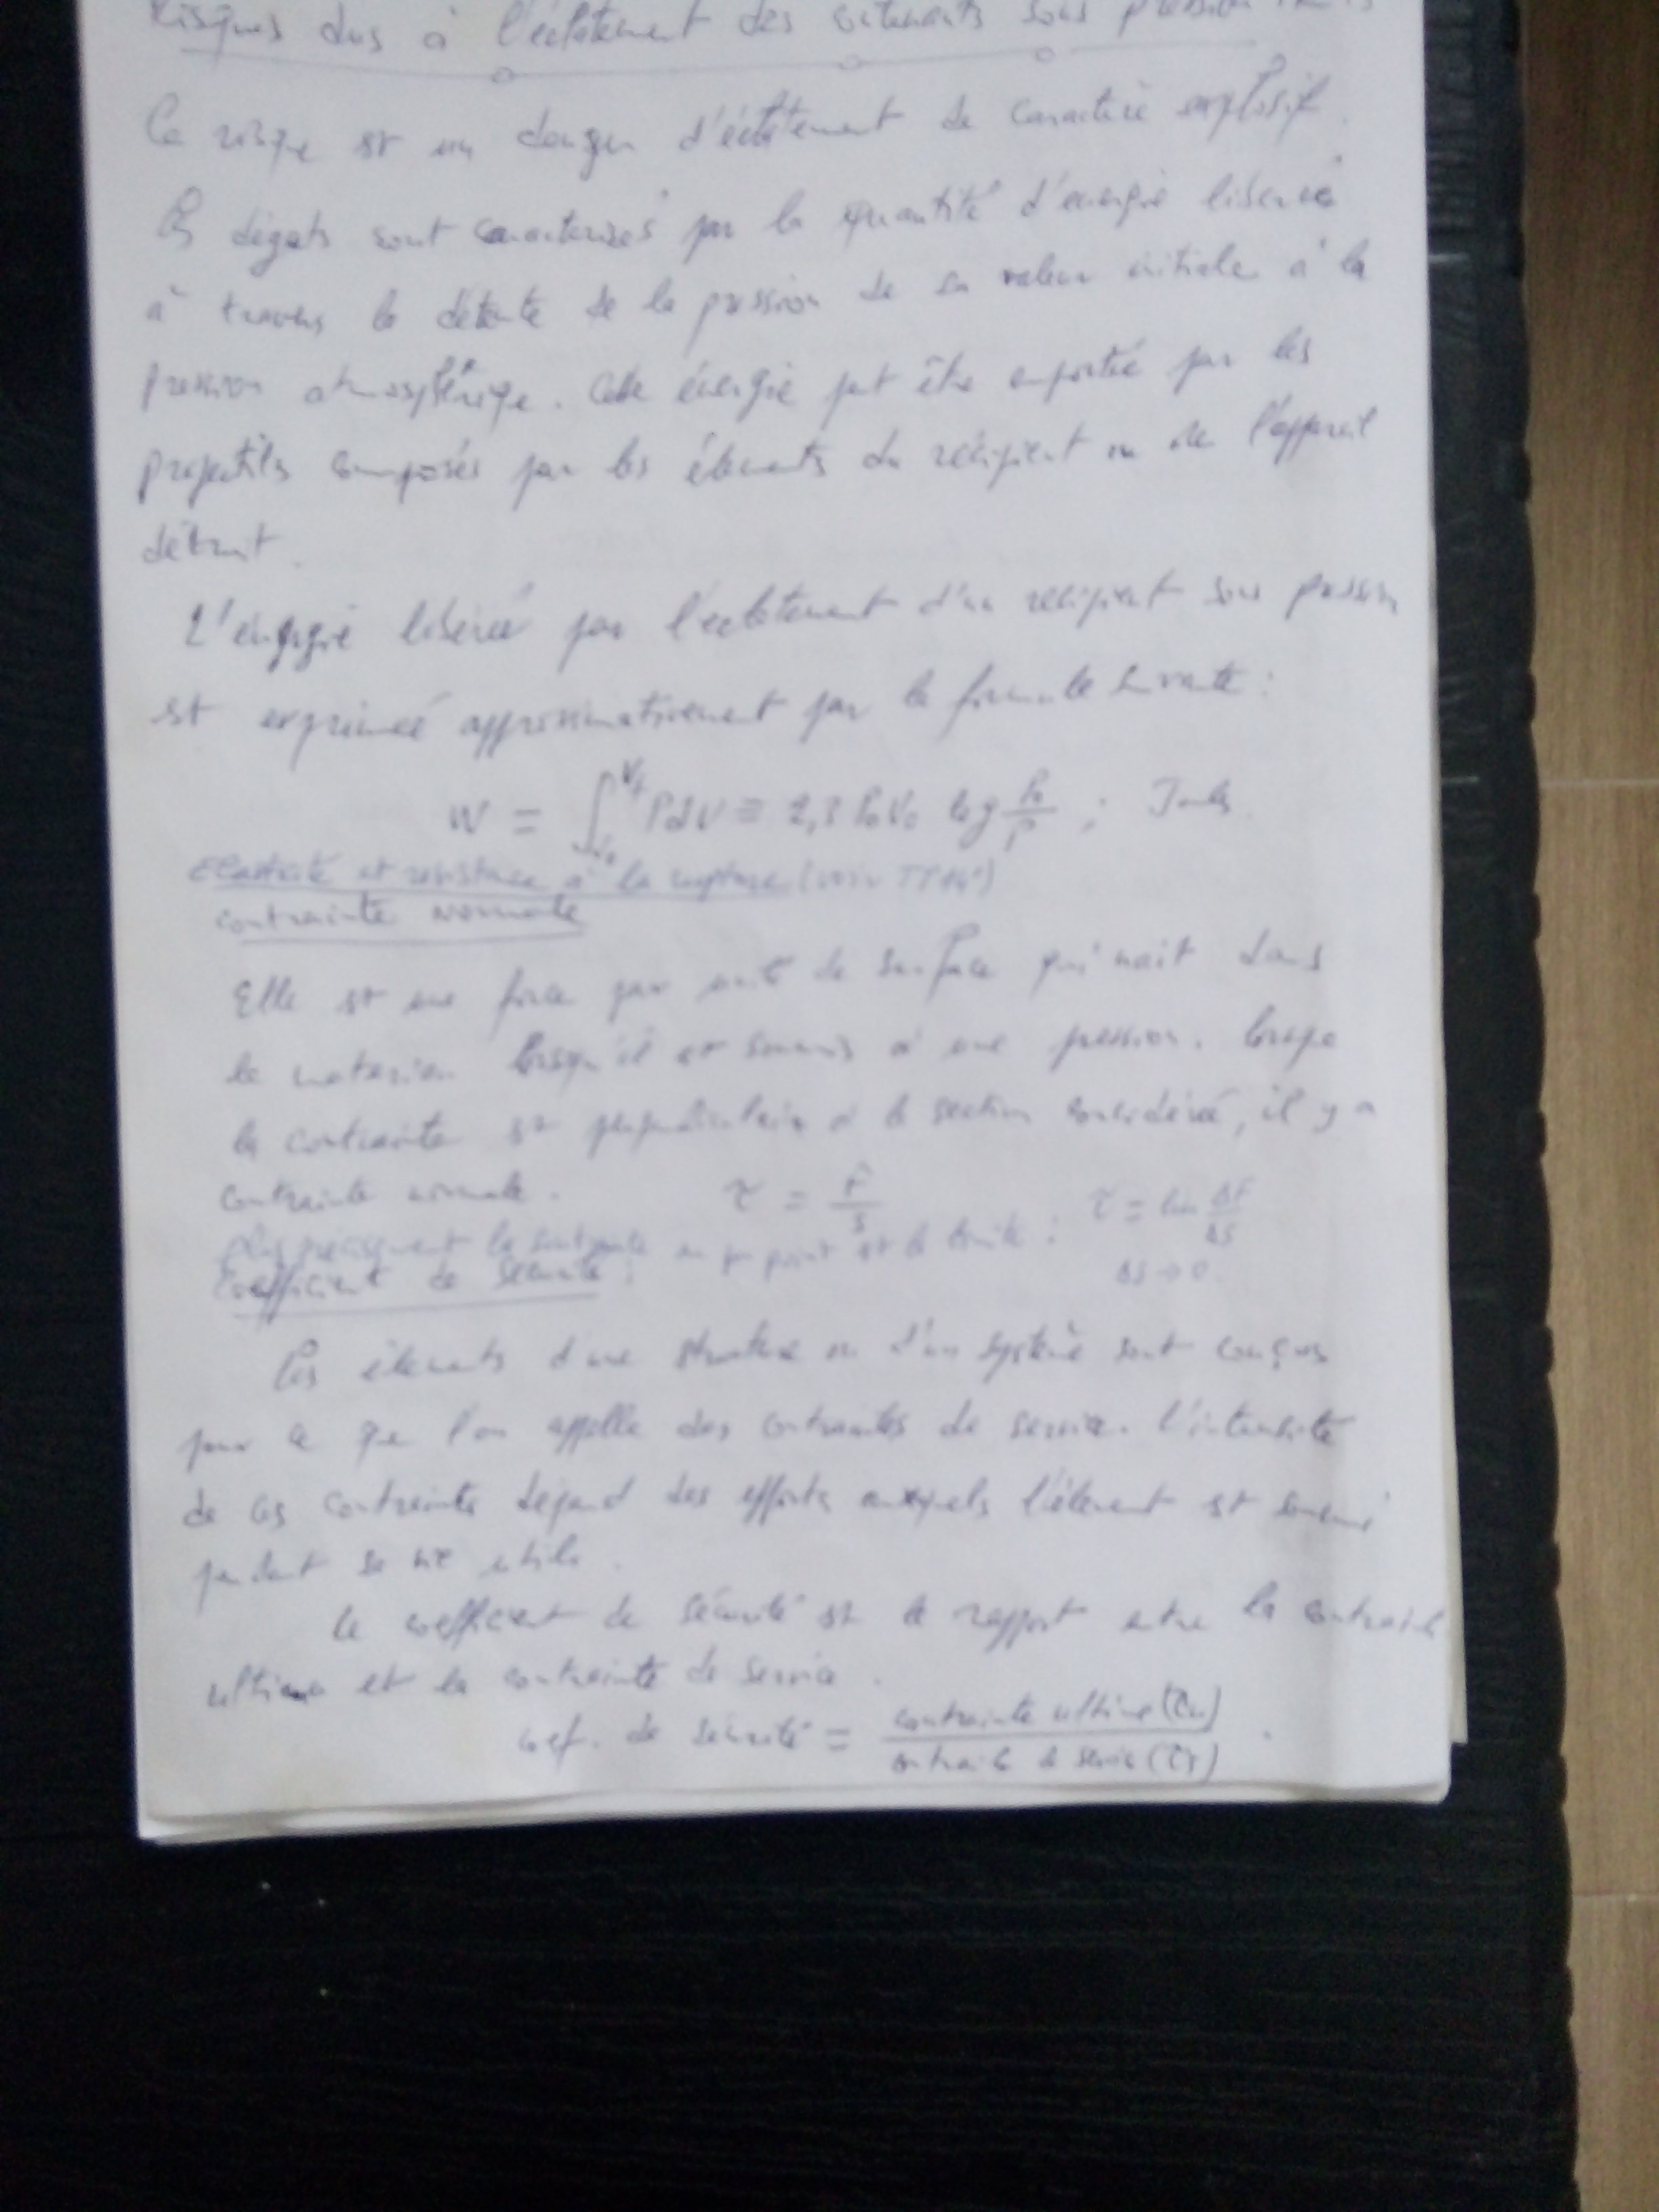 Risques dus à l'éclatement des contenants sous pression
Ce risque est un danger d'éclatement de caractère explosif.
Les dégats sont caractérisés par la quantité d'énergie libérée
à travers la détente de la pression de sa valeur initiale à la
pression atmosphérique. Cette énergie peut être emportée par les
projectils composés par les éléments du récipient ou de l'appareil
détruit.
L'énergie libérée par l'éclatement d'un récipient sous pression
est exprimée approximativement par la formule suivante :
W = ∫ PdV ≡ 2,3 P₀V₀ log P₀/P ; Joules.
Elasticité et résistance à la rupture (voir
contrainte normale
Elle est une force par unité de surface qui nait dans
le materiau lorsqu'il est soumis à une pression. lorsque
la contrainte est perpendiculaire à la section considérée, il y a
contrainte normale. τ = F/S τ = lim ΔF/ΔS
Plus précisément la contrainte en un point est la limite : ΔS→0
Coefficient de sécurité :
Les éléments d'une structure ou d'un système sont conçus
pour ce que l'on appelle des contraintes de service. l'intensité
de ces contraintes dépend des efforts auxquels l'élément est soumis
pendant sa vie utile.
Le coefficient de sécurité est le rapport entre la contrainte
ultime et la contrainte de service.
coef. de sécurité = contrainte ultime (τu) / contrainte de service (τs)